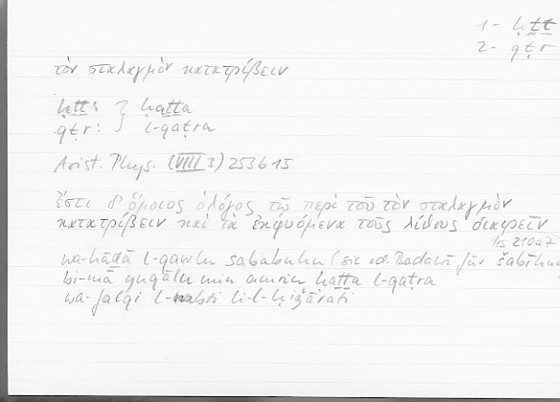 1 - ḥṯṯ
2 - qṭr
τὸν σταλαγμὸν κατατρίβειν
ḥṯṯ: } ḥaṯṯa
qṭr: } l-qaṭra
Arist. Phys. (VIII 3) 253b15
ἔστι δ' ὅμοιος ὁ λόγος τῷ περὶ τοῦ τὸν σταλαγμὸν
κατατρίβειν καὶ τὰ ἐκφυόμενα τοὺς λίθους διαιρεῖν
Hs 210a7
wa-hāḏā l-qawlu sababuhu (sic ed. Badawī für šabīhun
bi-mā yuqālu min amrin ḥaṯṯa l-qaṭra
wa-falqi l-nabti li-l-ḥiǧārati